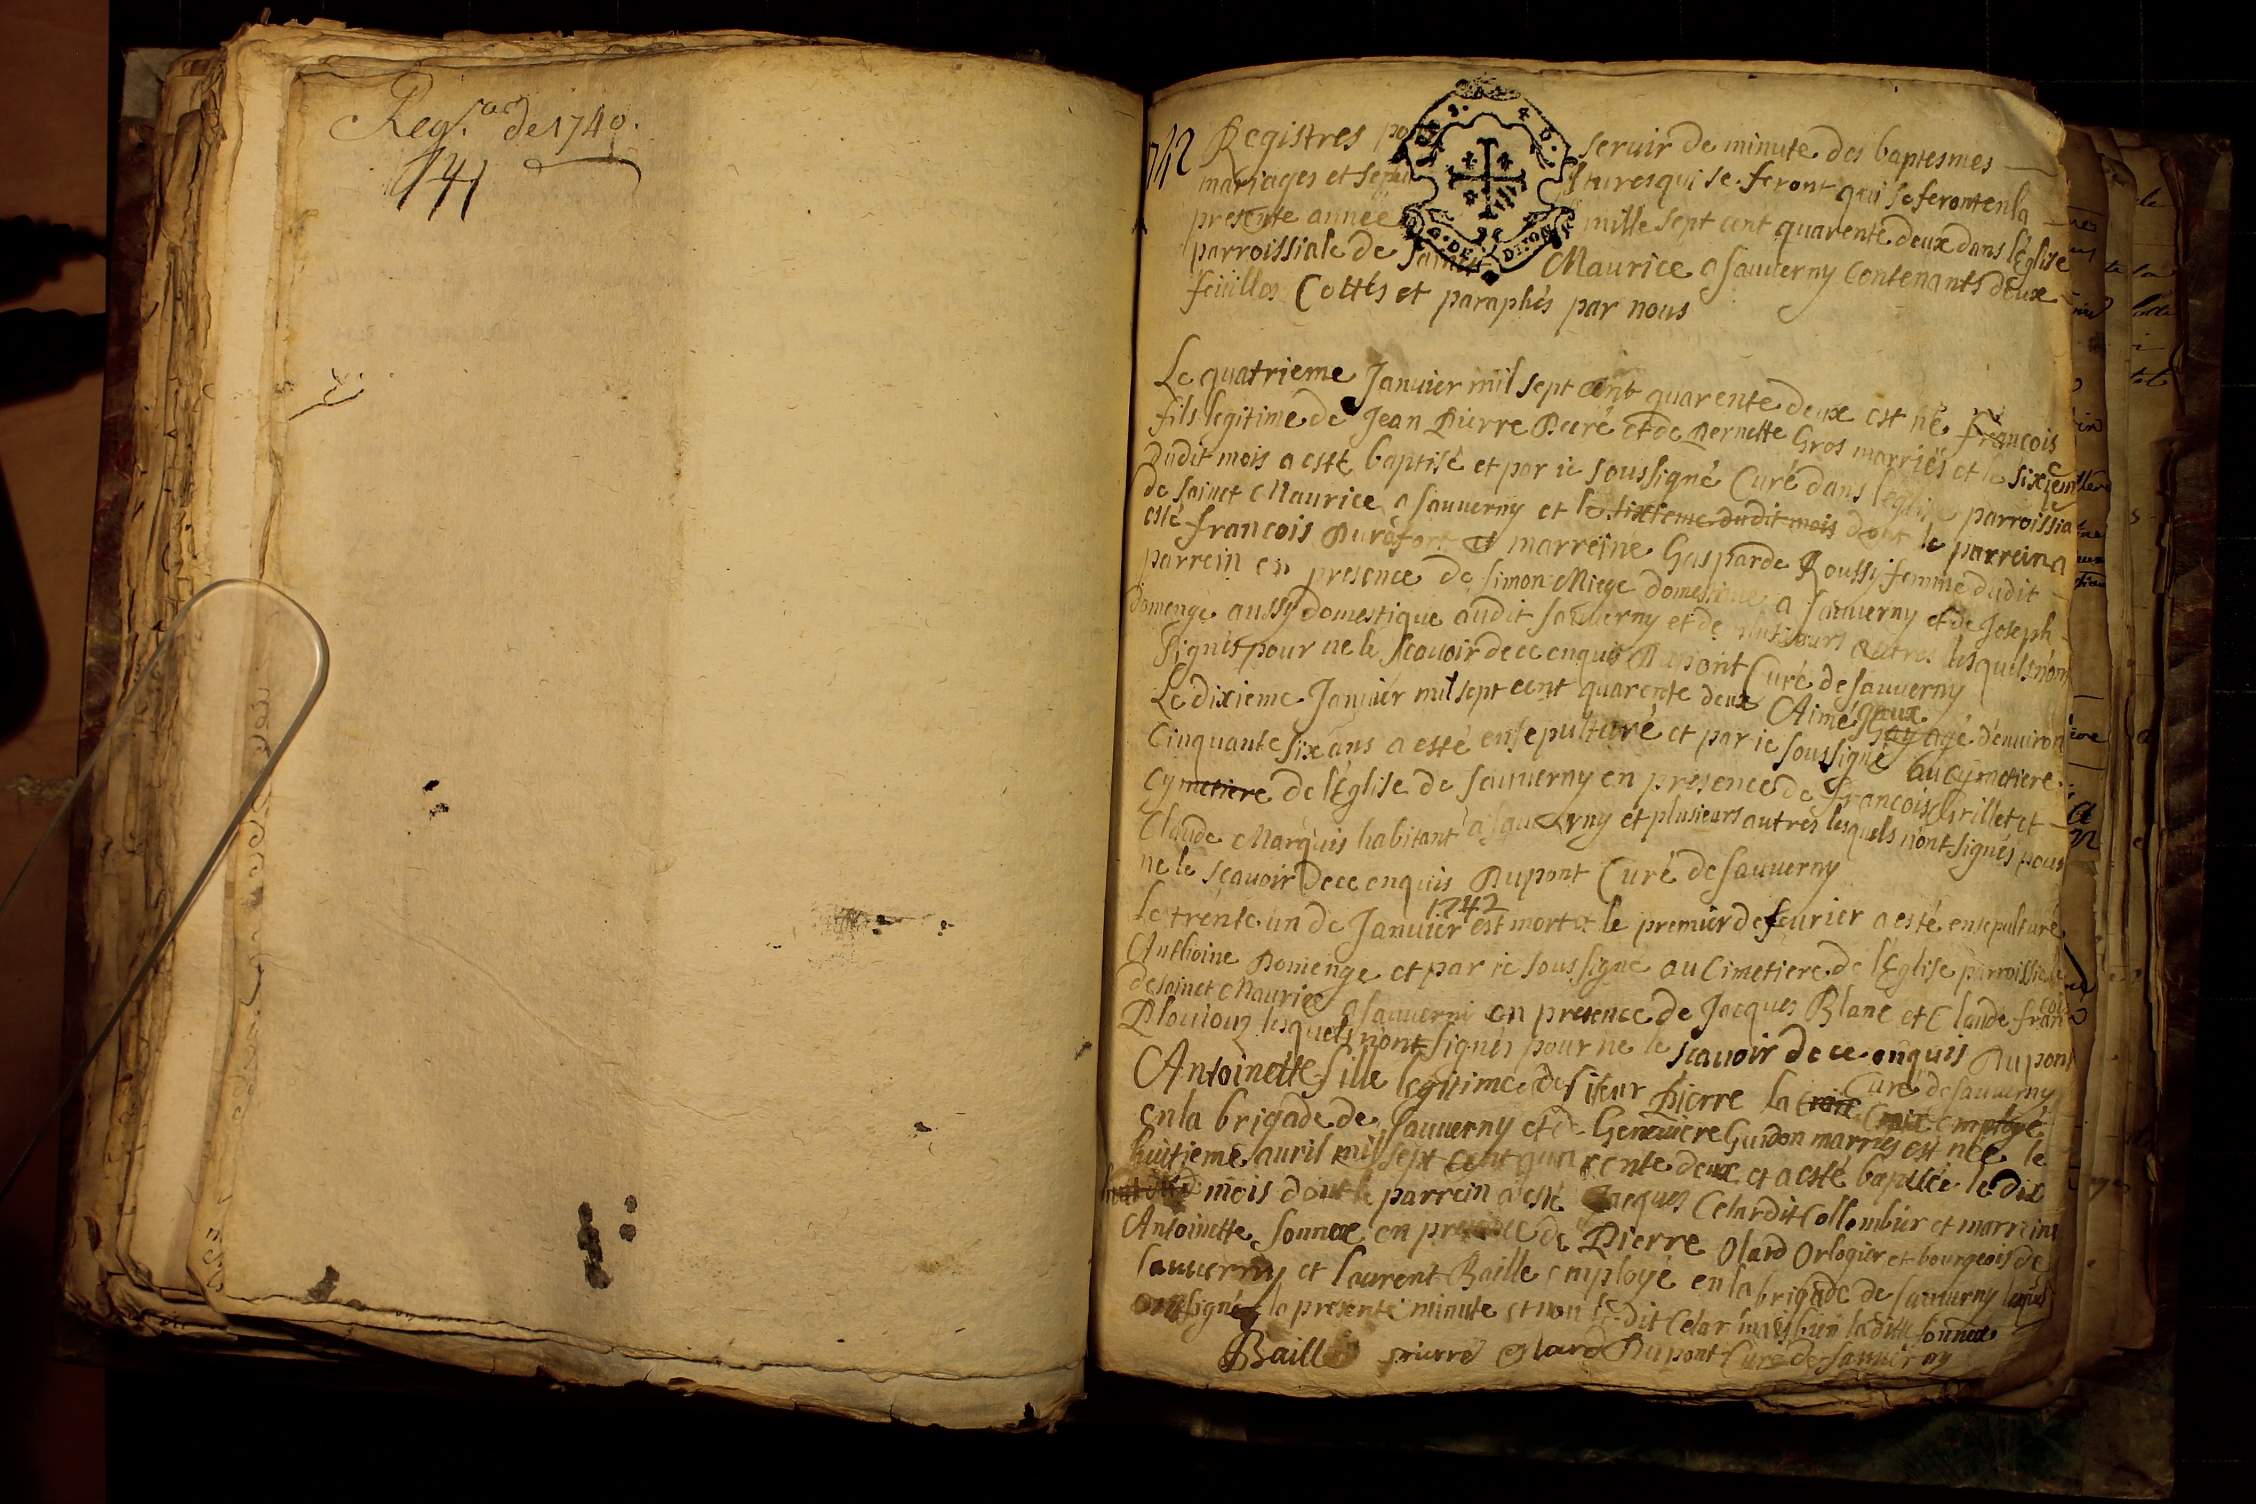 Reg.res de 1740.
1741
1742
Registres pour servir de minute des baptesmes
mariages et sepultures qui se feront qui se feront en la
presente année mille sept cent quarente deux dans lEglise
parroissiale de Sainct Maurice a Sauverny Contenants deux
feüilles Cottés et paraphés par nous
G. DE DIJON
Le quatrieme Janvier mil sept cent quarente deux est né françois
fils legitime de Jean Pierre et de Pernette Gros marriés et le sixiem
dudit mois a esté baptisé et par ie soussigné Curé dans leglise parroissia
de sainct Maurice a Sauverny et le sixieme dudit mois dont le parrein a
esté françois et marreine Gasparde Roussy femme dudit
parrein en presence de Simon Miege domestique a Sauverny et de Joseph
domenge aussy domestique audit Sauverny et de plusieurs autres lesquels n'ont
signés pour ne le scavoir de ce enquis Dupont Curé de Sauverny
Le dixieme Janvier mil sept cent quarente deux Aimé Gay agé d'environ
Cinquante six ans a esté ensepulturé et par ie soussigné au cymetiere
cymetiere de lEglise de Sauverny en presence de françois Grillet et
Claude Marquis habitant a Sauverny et plusieurs autres lesquels n'ont signés pour
ne le scavoir de ce enquis Dupont Curé de Sauverny
1742
Le trente un de Janvier est mort et le premier de fevrier a esté ensepulturé
Anthoine Domenge et par ie soussigné au Cimetiere de lEglise parroissiale
de sainct Maurice a Sauverni en presence de Jacques Blanc et Claude françois
lesquels n'ont signés pour ne le scavoir de ce enquis Dupont
Curé de Sauverny
Antoinette fille legitime de sieur Pierre la Croix Croix employé
en la brigade de Sauverny et de Genevieve Guidon marriés est née le
huitieme avril mil sept cent quarente deux et a esté baptisée le dit
mois dont le parrein a esté Jacques Celar dit Collombier et marreine
Antoinette Sonnex en presence de Pierre Olard Orlogier et bourgeois de
Sauverny et laurent Baille employé en la brigade de Sauverny lesquels
ont signés la presente minute et non le dit Celar laditte Sonnex
Baille pierre olard Dupont Curé de Sauverny